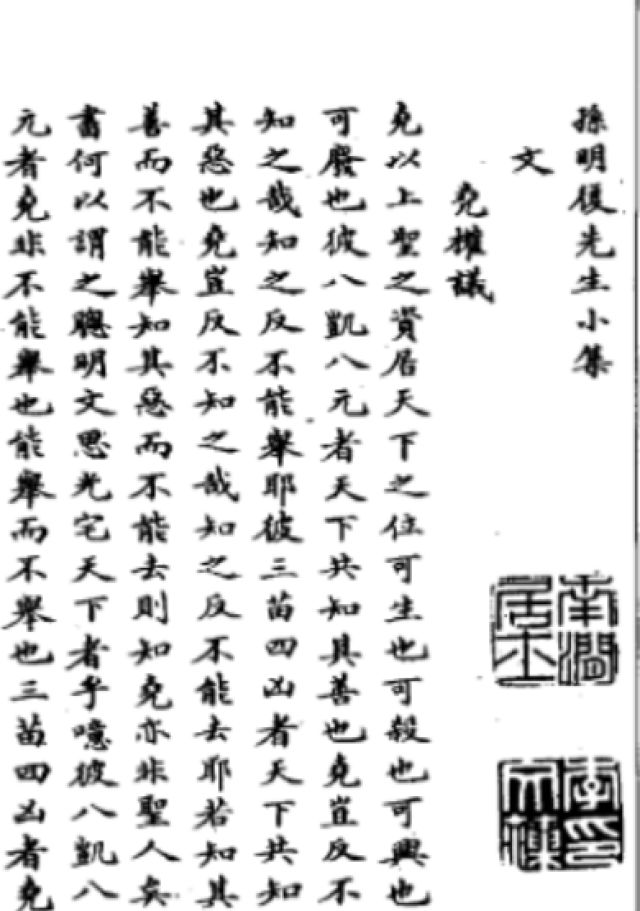 孫明復先生小集
文
堯權議
堯以上聖之資居天下之位可生也可殺也可興也
可廢也彼八凱八元者天下共知其善也堯豈反不
知之哉知之反不能舉耶彼三苗四凶者天下共知
其惡也堯豈反不知之哉知之反不能去耶若知其
善而不能舉知其惡而不能去則知堯亦非聖人矣
書何以謂之聰明文思光宅天下者乎噫彼八凱八
元者堯非不能舉也能舉而不舉也三苗四凶者堯
南澗居士
李印文藻